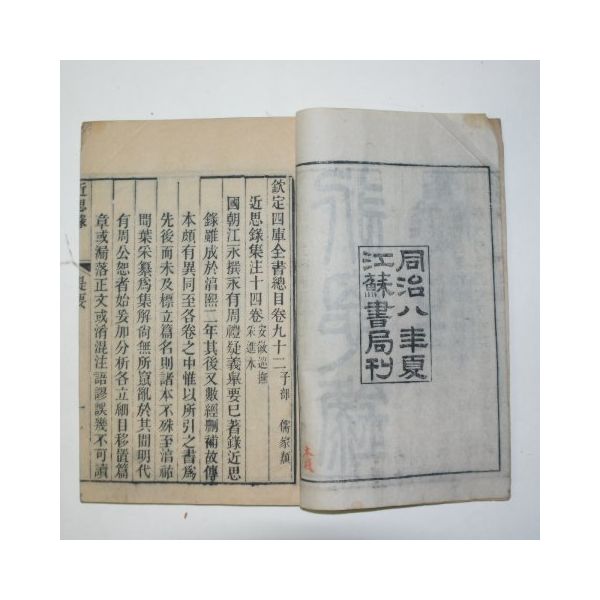 同治八年夏
江蘇書局刊
欽定四庫全書總目卷九十二 子部 儒家類
近思錄集注十四卷 安徽巡撫朱進本
國朝江永撰永有周禮疑義舉要已著錄近思
錄雖成於淳熙二年其後又數經刪補故傳
本頗有異同至各卷之中惟以所引之書爲
先後而未及標立篇名則諸本不殊至淳祐
間葉采纂爲集解尙無所竄亂於其間明代
有周公恕者始妄加分析各立細目移置篇
章或漏落正文或淆混注語謬誤幾不可讀
近思錄 提要 一